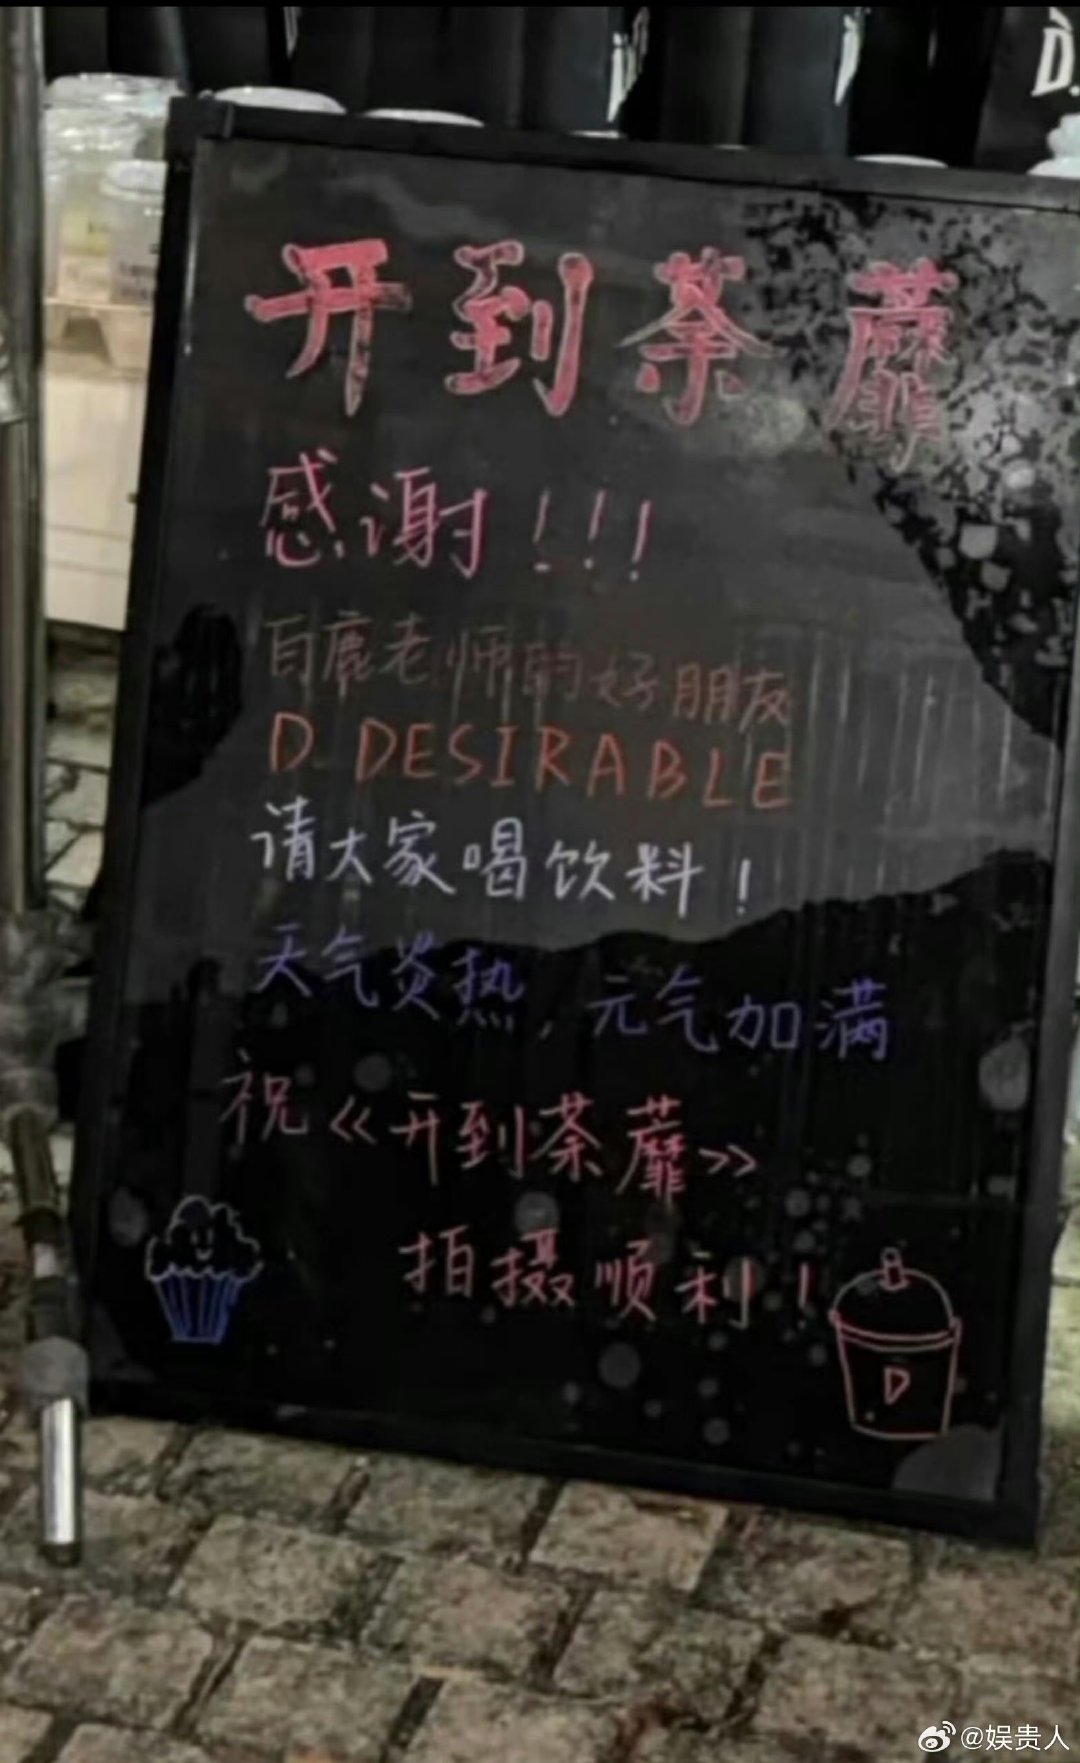 D.
开到荼蘼
感谢!!!
白鹿老师的好朋友
D DESIRABLE
请大家喝饮料!
天气炎热,元气加满
祝《开到荼蘼》
拍摄顺利!
D
@娱贵人